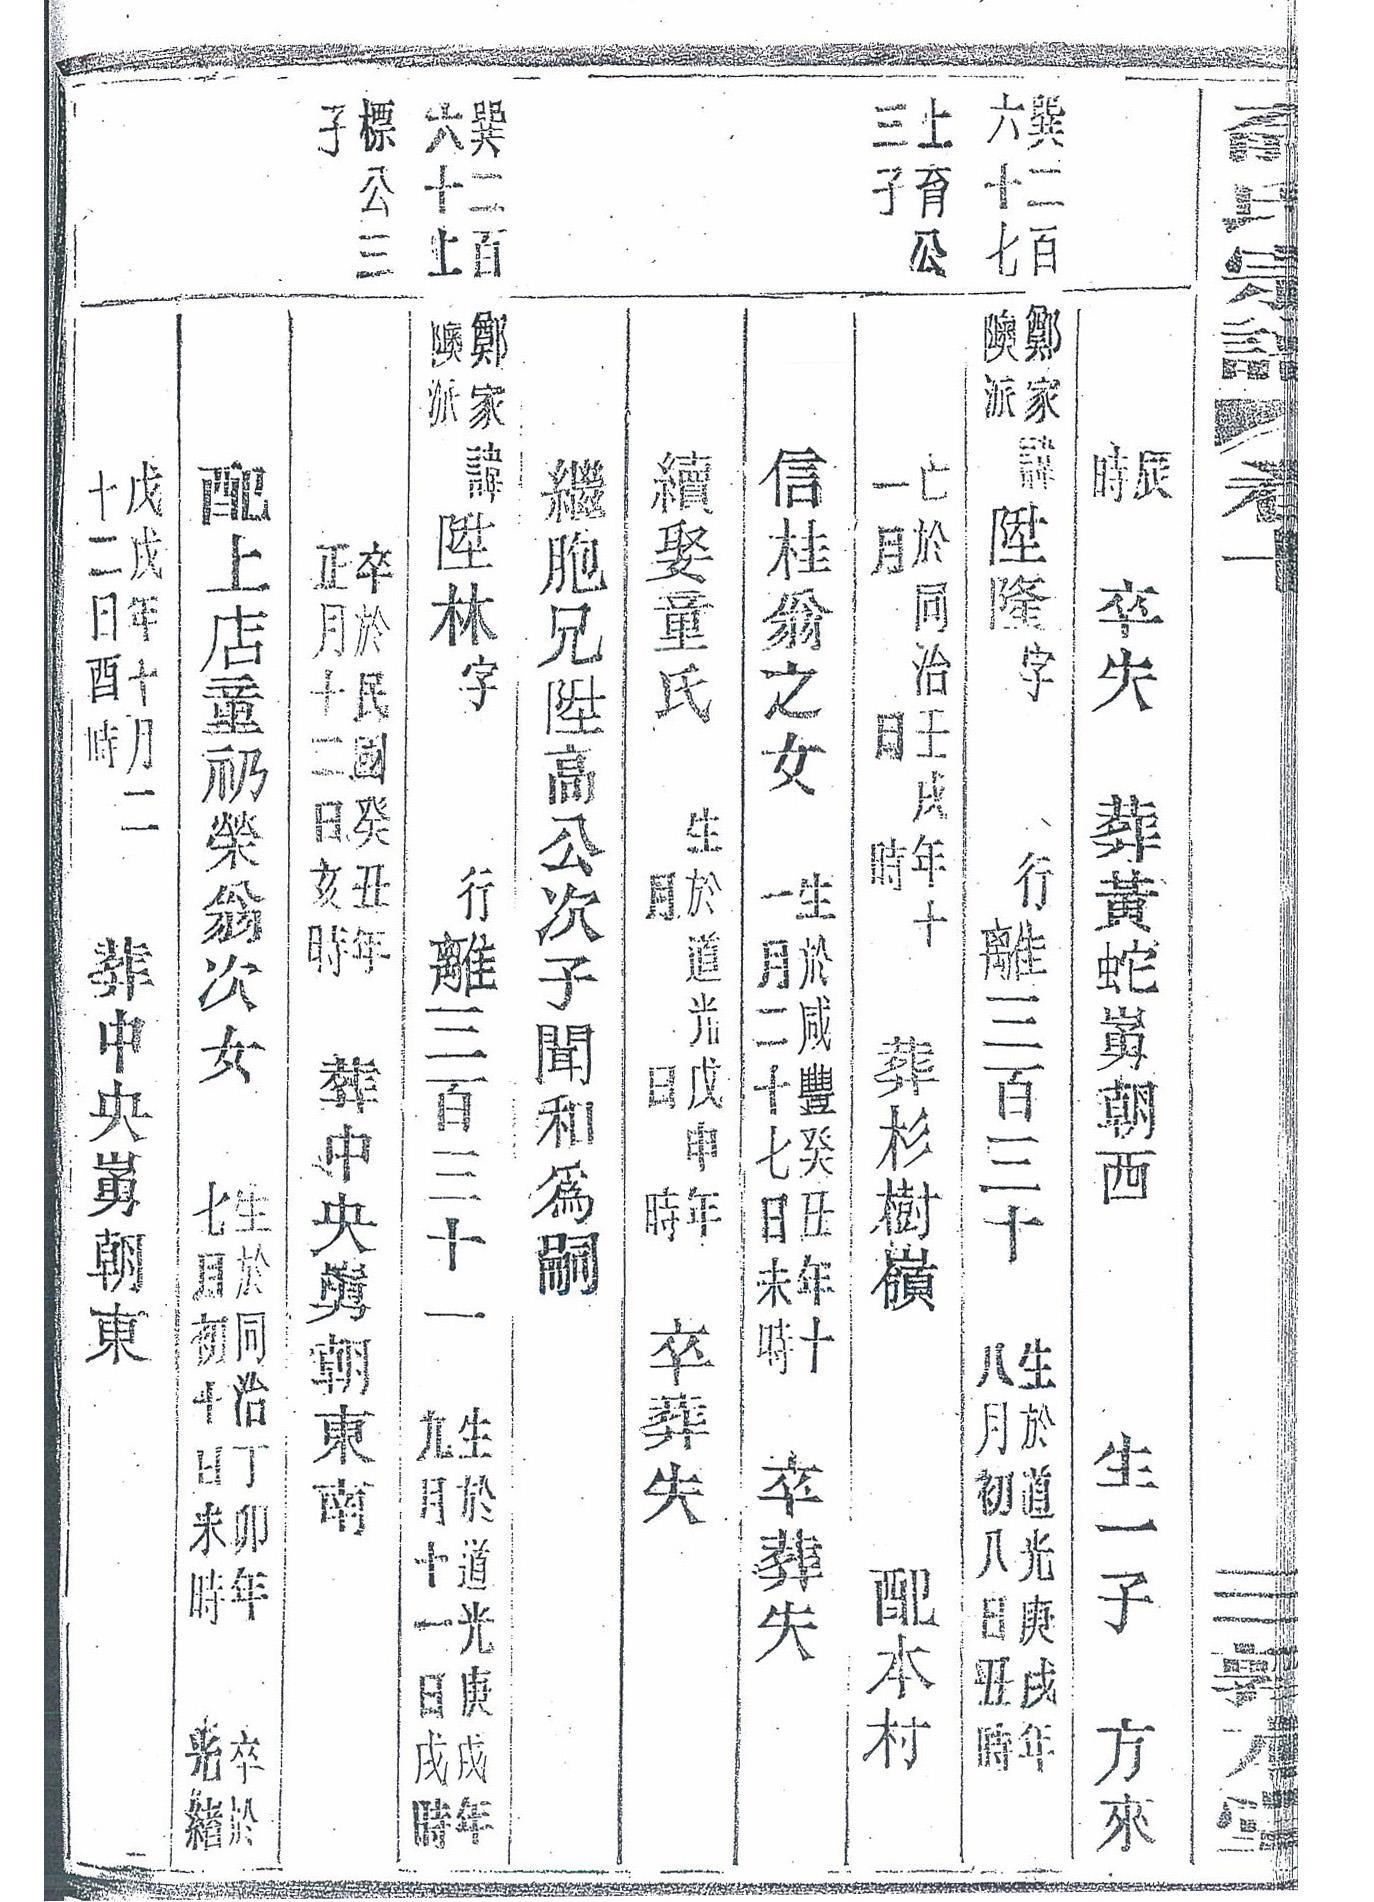 氏宗譜 卷一
辰時 卒失 葬黃蛇塆朝西 生一子 方來
巽二百六十七 鄭家隩派 諱陞隆字 行離三百三十 生於道光庚戌年八月初八日丑時
上育公三子 亡於同治壬戌年十一月 日 時 葬杉樹嶺 配本村
信桂翁之女 生於咸豐癸丑年十一月二十七日未時 卒葬失
續娶童氏 生於道光戊申年 月 日 時 卒葬失
繼胞兄陞高公次子聞和為嗣
巽二百六十上 鄭家隩派 諱陞林字 行離三百三十一 生於道光庚戌年九月十一日戌時
標公三子 卒於民國癸丑年正月十二日亥時 葬中央塆朝東南
配上店童礽榮翁次女 生於同治丁卯年七月初十日未時 卒於光緒
戊戌年十月二十二日酉時 葬中央塆朝東